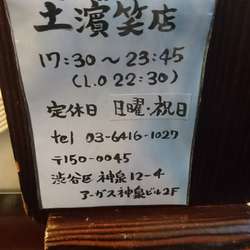 土濱笑店
17:30～23:45
(L.O 22:30)
定休日 日曜・祝日
tel 03-6416-1027
〒150-0045
渋谷区神泉12-4
アーガス神泉ビル2F